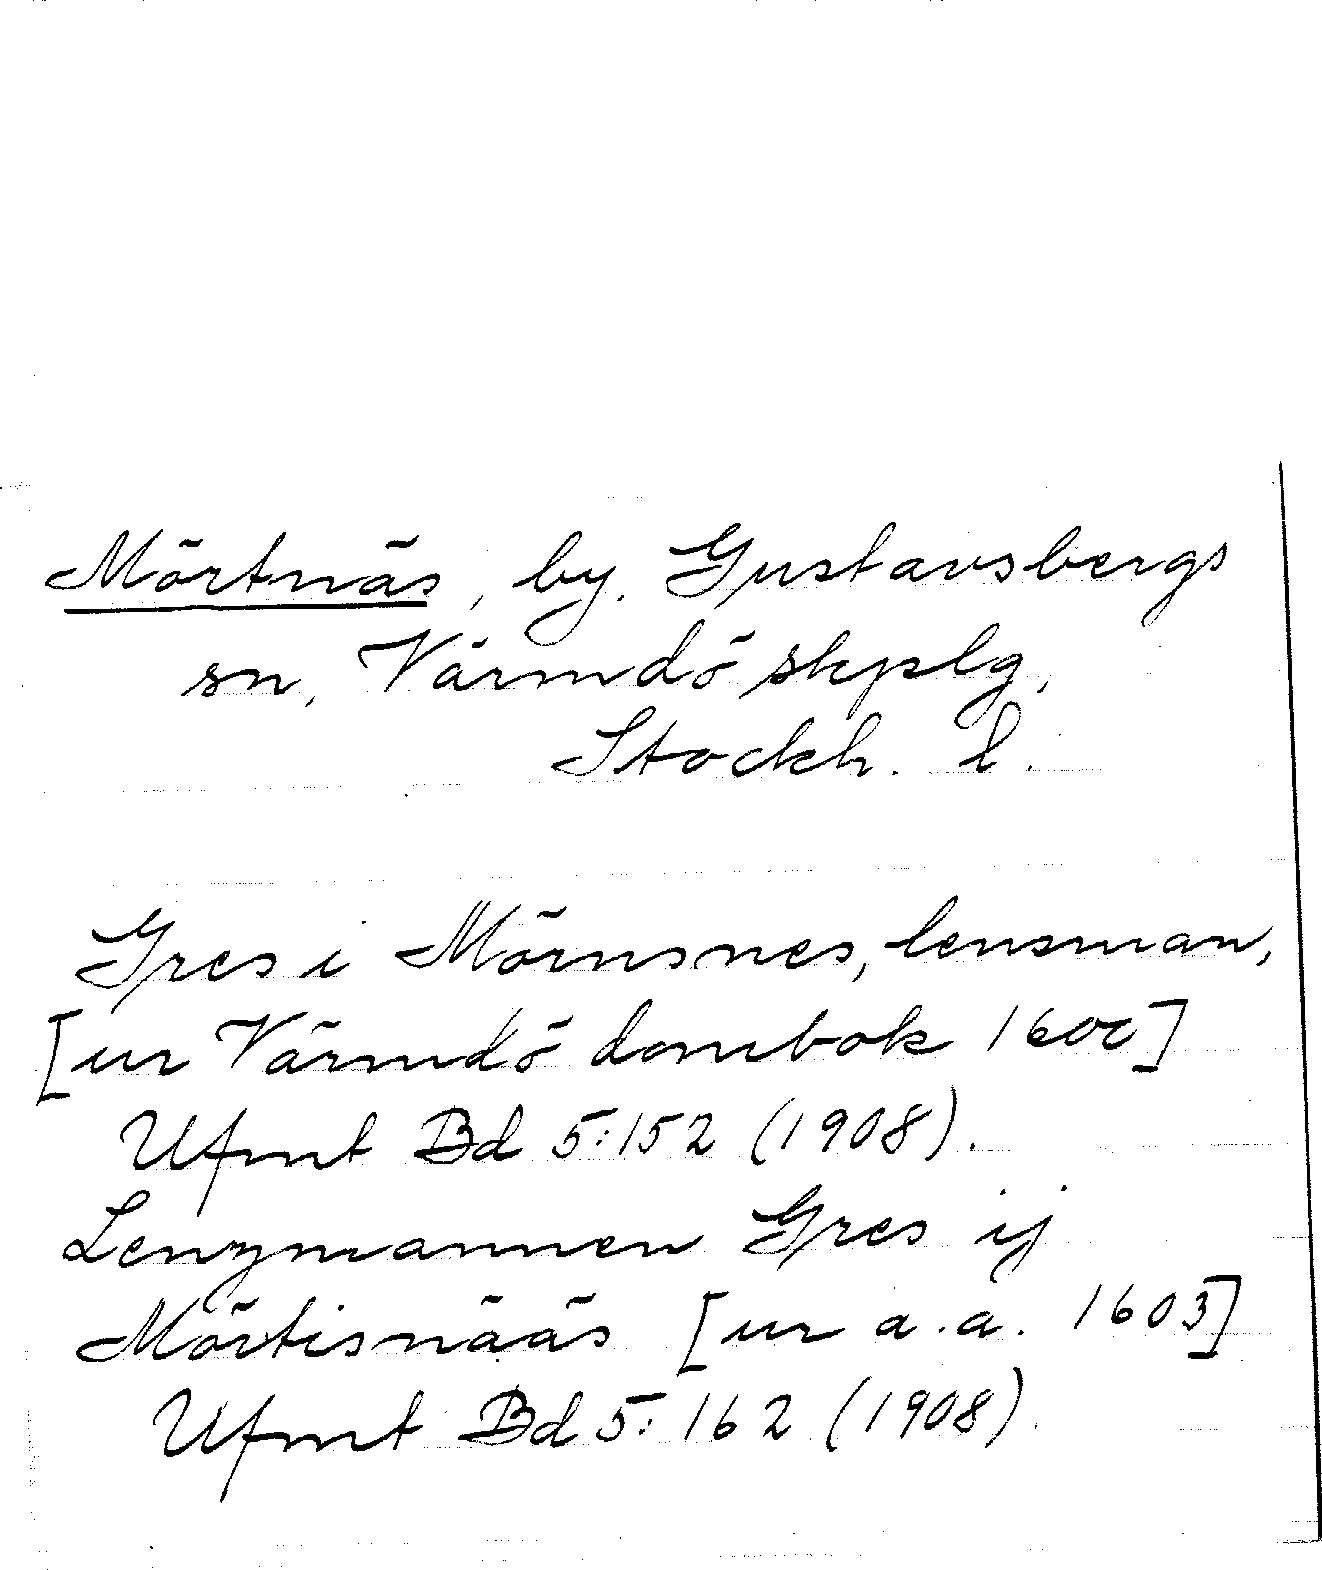 Mörtnäs, by. Gustavsbergs
sn, Värmdö skplg,
Stockh. l.
Gres i Mörnsnes, lensman,
[ur Värmdö dombok 1600]
Ufmt Bd 5:152 (1908).
Lenzmannen Gres ij
Mörtisnääs [ur a.a. 1603]
Ufmt Bd 5:162 (1908).